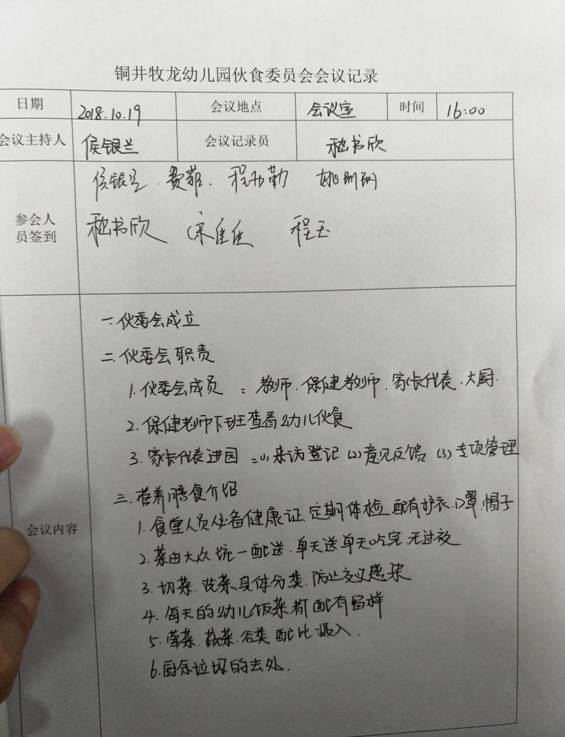 铜井牧龙幼儿园伙食委员会会议记录
日期 2018.10.19 会议地点 会议室 时间 16:00
会议主持人 侯银兰 会议记录员 嵇书欣
侯银兰 费菲
参会人
员签到
嵇书欣 宋佳佳 程玉
会议内容
一.伙委会成立
二.伙委会职责
1.伙委会成员:教师.保健教师.家长代表.大厨.
2.保健老师下班查看幼儿伙食
3.家长代表进园:(1)来访登记(2)意见反馈(3)专项管理
三.营养膳食介绍
1.食堂人员必备健康证.定期体检.配有护衣.口罩.帽子
2.菜由大众统一配送.单天送单天吃完无过夜
3.切菜.洗菜具体分类.防止交叉感染
4.每天的幼儿饭菜都配有留样
5.荤菜.蔬菜.谷类配比摄入.
6.厨余垃圾的去处.